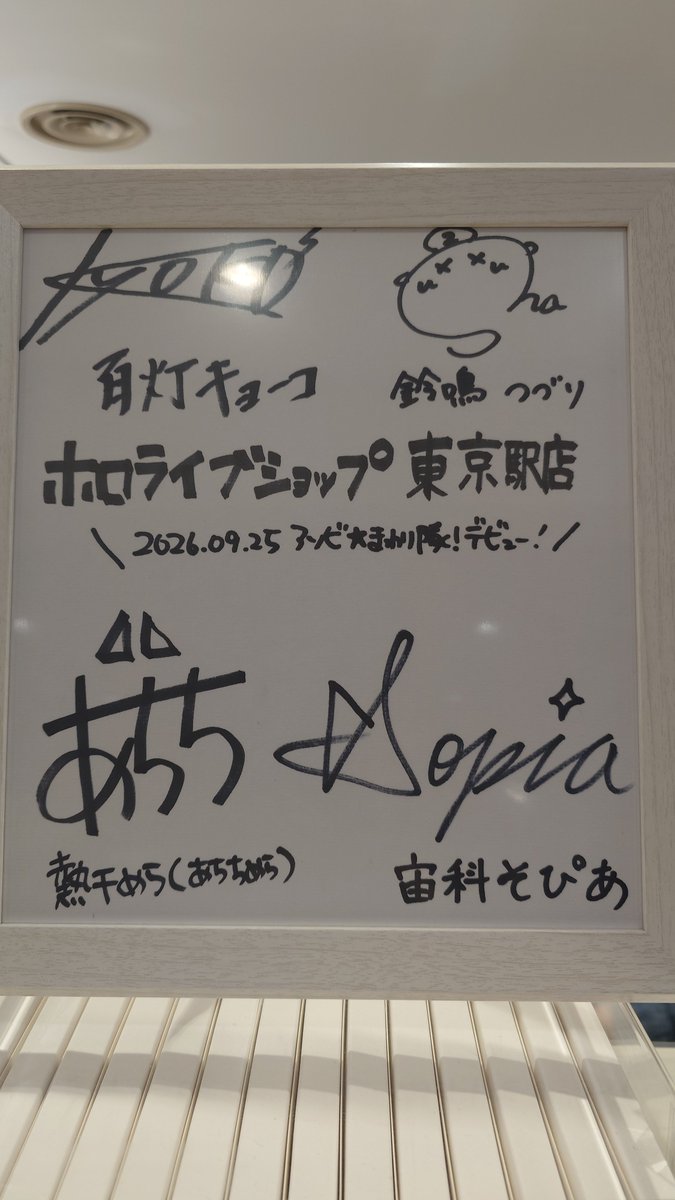 百灯キョーコ
鈴鳴 つづり
ホロライブショップ 東京駅店
2026.09.25 アソビ大まわり隊!デビュー!
あちち
Sopia
熱千めら(あちちめら)
宙科そぴあ